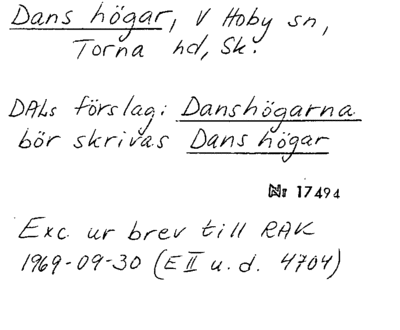 Dans högar, V Hoby sn,
Torna hd, Sk.
DALs förslag: Danshögarna
bör skrivas Dans högar
Nr 17494
Exc ur brev till RAK
1969-09-30 (E II u. d. 4704)